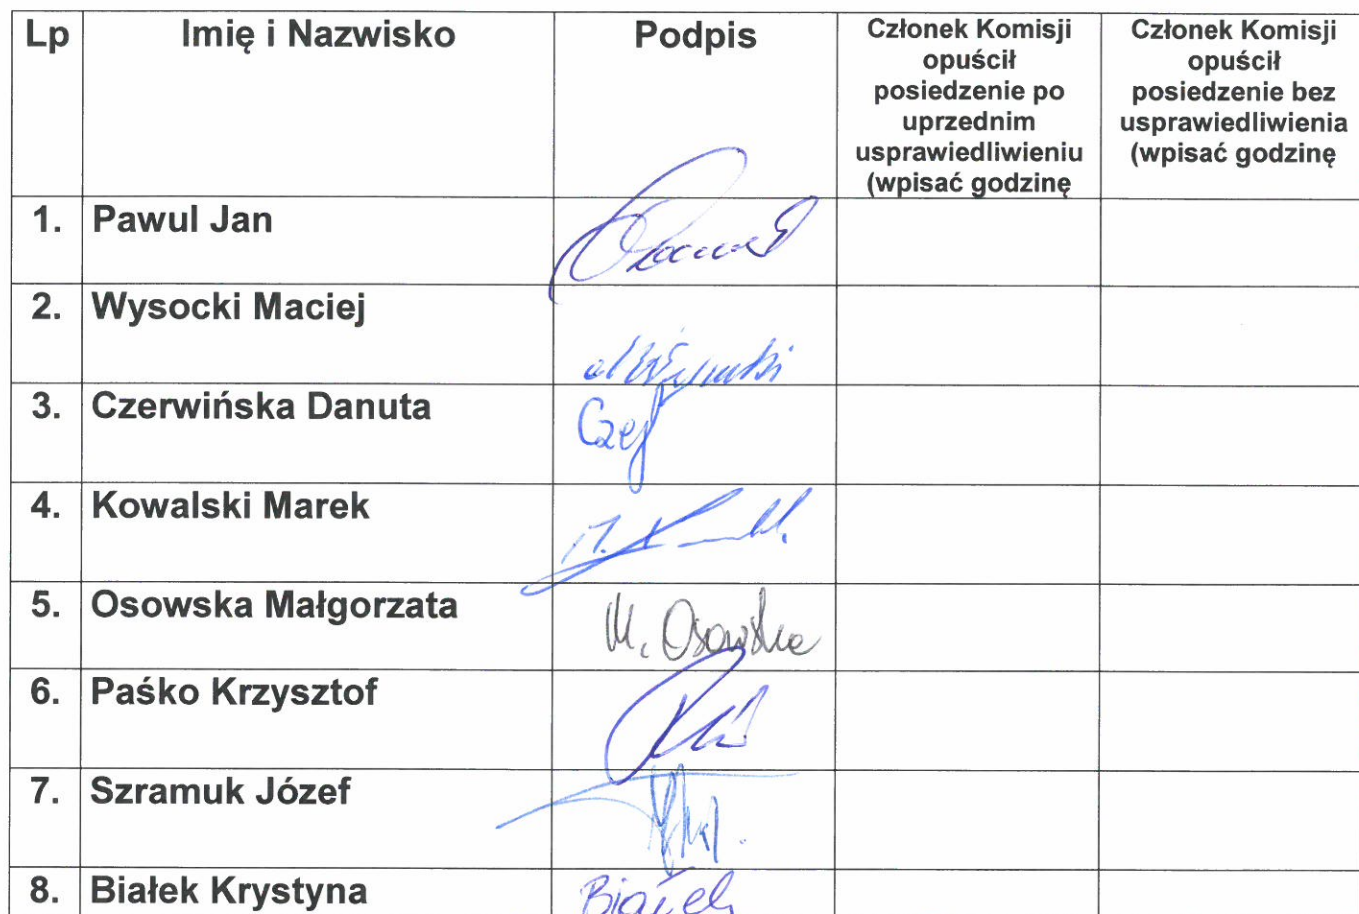 Lp Imię i Nazwisko Podpis
Członek Komisji
opuścił
posiedzenie po
uprzednim
usprawiedliwieniu
(wpisać godzinę
Członek Komisji
opuścił
posiedzenie bez
usprawiedliwienia
(wpisać godzinę
1. Pawul Jan
2. Wysocki Maciej
3. Czerwińska Danuta
4. Kowalski Marek
5. Osowska Małgorzata M. Osowska
6. Paśko Krzysztof
7. Szramuk Józef
8. Białek Krystyna Białek